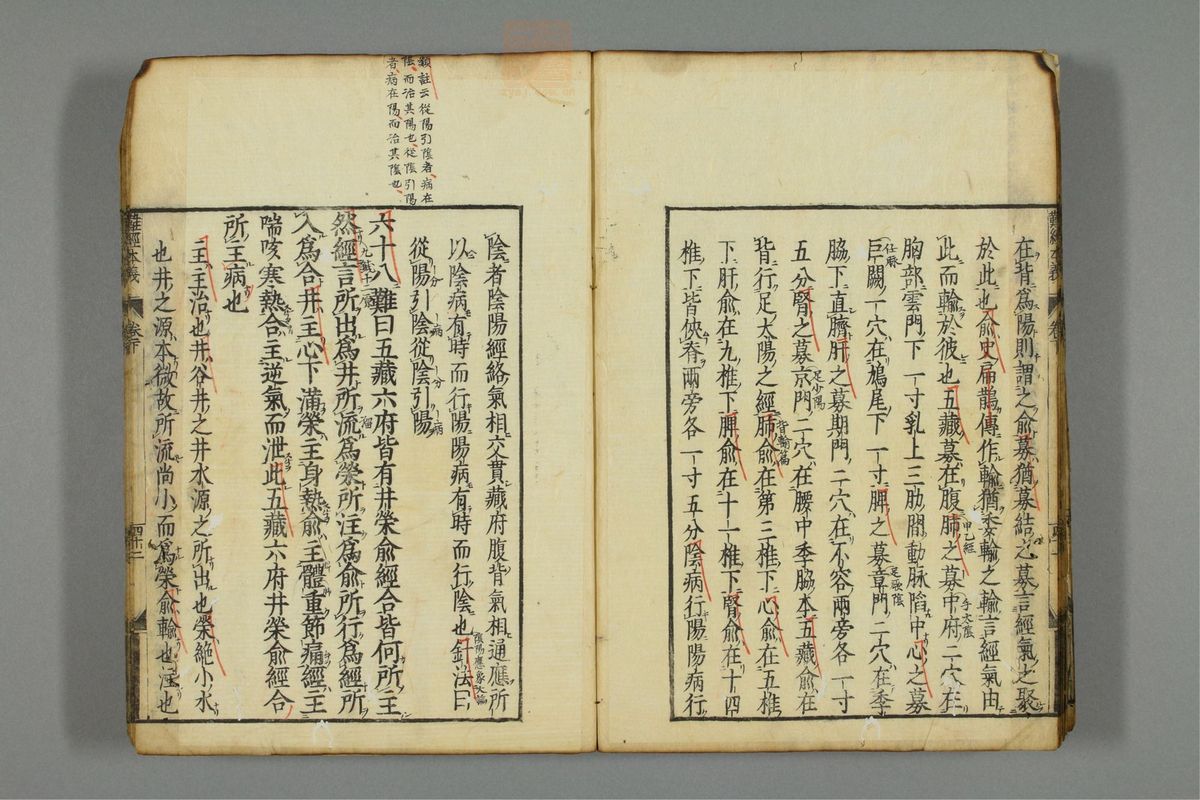 在背爲陽則謂之俞募猶募結之募言經氣之聚
於此也俞史扁鵲傳作輸猶委輸之輸言經氣由
此而輸於彼也五藏募在腹肺之募中府二穴在
甲乙經
手太陰
胸部雲門下一寸乳上三肋間動脉陷中心之募
巨闕一穴在鳩尾下一寸脾之募章門二穴在季
任脉
足厥陰
脇下直臍肝之募期門二穴在不容兩旁各一寸
五分腎之募京門二穴在腰中季脇本五藏俞在
足少陽
背行足太陽之經肺俞在第三椎下心俞在五椎
背輸篇
下肝俞在九椎下脾俞在十一椎下腎俞在十四
椎下皆俠脊兩旁各一寸五分陰病行陽陽病行
難經本義
卷下
四十二
陰者陰陽經絡氣相交貫藏府腹背氣相通應所
以陰病有時而行陽陽病有時而行陰也針法曰
陰陽應象大論
從陽引陰從陰引陽
類註云從陽引陰者病在
陰而治其陽也從陰引陽
者病在陽而治其陰也
六十八難曰五藏六府皆有井榮俞經合皆何所主
然經言所出爲井所流爲榮所注爲俞所行爲經所
九鍼十二原
入爲合井主心下滿榮主身熱俞主體重節痛經主
喘咳寒熱合主逆氣而泄此五藏六府井榮俞經合
所主病也
主主治也井谷井之井水源之所出也榮絶小水
也井之源本微故所流尚小而爲榮俞輸也注也
難經本義
卷下
四十二